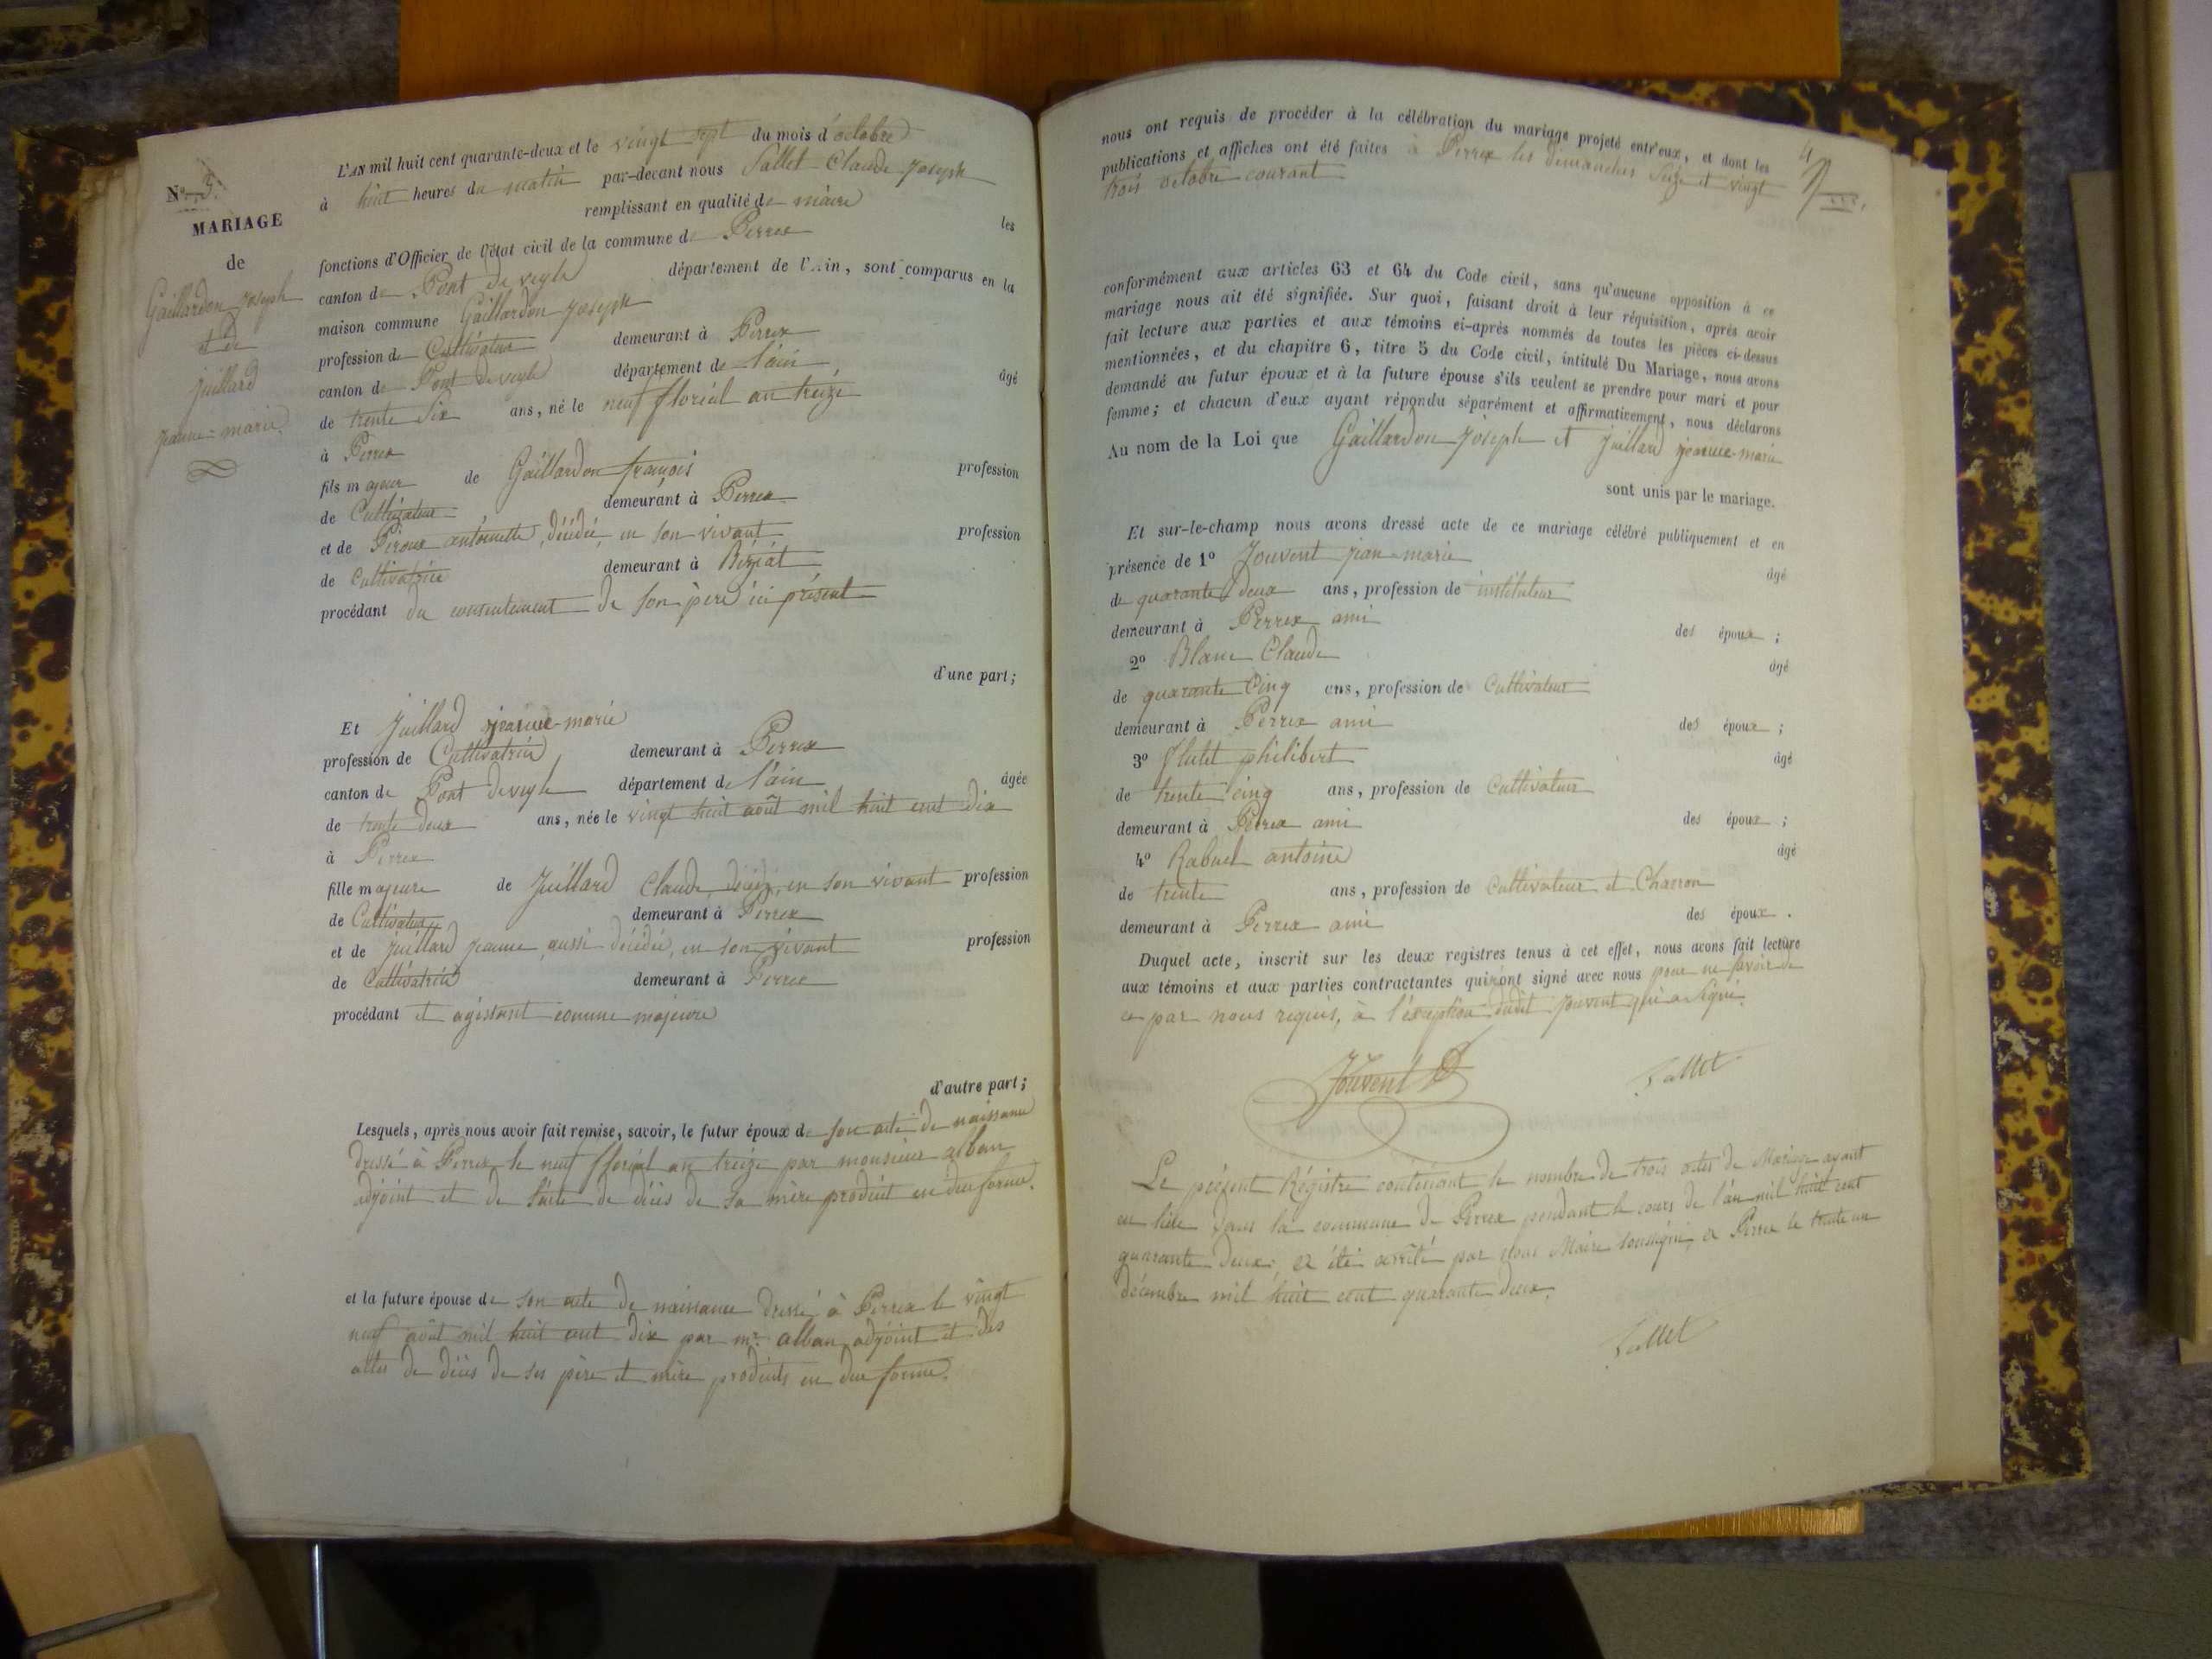 N.° 3.
MARIAGE
de
Gaillardon Joseph
et de
juillard
jeanne-marie.
L'AN mil huit cent quarante-deux et le vingt sept du mois d'octobre
à huit heures du matin par-devant nous Sallet Claude Joseph
remplissant en qualité de maire les
fonctions d'Officier de l'état civil de la commune de Perrex
canton de Pont de veyle département de l'Ain, sont comparus en la
maison commune Gaillardon Joseph
profession de Cultivateur demeurant à Perrex
canton de Pont de veyle département de l'ain âgé
de trente six ans, né le neuf floréal an treize
à Perrex
fils majeur de Gaillardon françois profession
de Cultivateur demeurant à Perrex
et de antoinette, décédée, en son vivant profession
de Cultivatrice demeurant à Biziat
procédant du consentement de son père ici présent
d'une part;
Et Juillard jeanne-marie
profession de Cultivatrice demeurant à Perrex
canton de Pont de veyle département de l'ain âgée
de trente deux ans, née le vingt huit août mil huit cent dix
à Perrex
fille majeure de Juillard Claude, décédé, en son vivant profession
de Cultivateur demeurant à Perrex
et de juillard jeanne, aussi décédée, en son vivant profession
de Cultivatrice demeurant à Perrex
procédant et agissant comme majeure
d'autre part;
Lesquels, après nous avoir fait remise, savoir, le futur époux de son acte de naissance
dressé à Perrex le neuf floréal an treize par monsieur alban
adjoint et de l'acte de décès de sa mère produit en due forme.
et la future épouse de son acte de naissance dressé à Perrex le vingt
neuf août mil huit cent dix par mr. alban adjoint et des
actes de décès de ses père et mère produits en due forme.
4
nous ont requis de procéder à la célébration du mariage projeté entr'eux, et dont les
publications et affiches ont été faites à Perrex les dimanches seize et vingt
trois octobre courant
conformément aux articles 63 et 64 du Code civil, sans qu'aucune opposition à ce
mariage nous ait été signifiée. Sur quoi, faisant droit à leur réquisition, après avoir
fait lecture aux parties et aux témoins ci-après nommés de toutes les pièces ci-dessus
mentionnées, et du chapitre 6, titre 5 du Code civil, intitulé Du Mariage, nous avons
demandé au futur époux et à la future épouse s'ils veulent se prendre pour mari et pour
femme; et chacun d'eux ayant répondu séparément et affirmativement, nous déclarons
Au nom de la Loi que Gaillardon Joseph et juillard jeanne-marie
sont unis par le mariage.
Et sur-le-champ nous avons dressé acte de ce mariage célébré publiquement et en
présence de 1° Jouvent jean-marie âgé
de quarante deux ans, profession de instituteur
demeurant à Perrex ami des époux;
2° Blanc Claude âgé
de quarante cinq ans, profession de Cultivateur
demeurant à Perrex ami des époux;
3° Flutet philibert âgé
de trente cinq ans, profession de Cultivateur
demeurant à Perrex ami des époux;
4° Rabuel antoine âgé
de trente ans, profession de Cultivateur et Charron
demeurant à Perrex ami des époux.
Duquel acte, inscrit sur les deux registres tenus à cet effet, nous avons fait lecture
aux témoins et aux parties contractantes qui n'ont signé avec nous pour ne savoir de
ce par nous requis, à l'exception dudit jouvent qui a signé.
Jouvent Sallet
Le présent Régistre contenant le nombre de trois actes de Mariage ayant
eu lieu dans la commune de Perrex pendant le cours de l'an mil huit cent
quarante deux; a été arrêté par nous Maire soussigné, à Perrex le trente un
décembre mil huit cent quarante deux.
Sallet